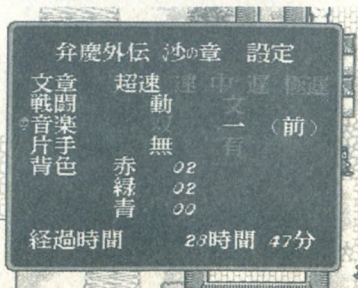 弁慶外伝 沙の章 設定
文章 超速 速 中 遅 極遅
戦闘 動 文
音楽 一 (前)
片手 無 有
背色 赤 02
緑 02
青 00
経過時間 28時間 47分